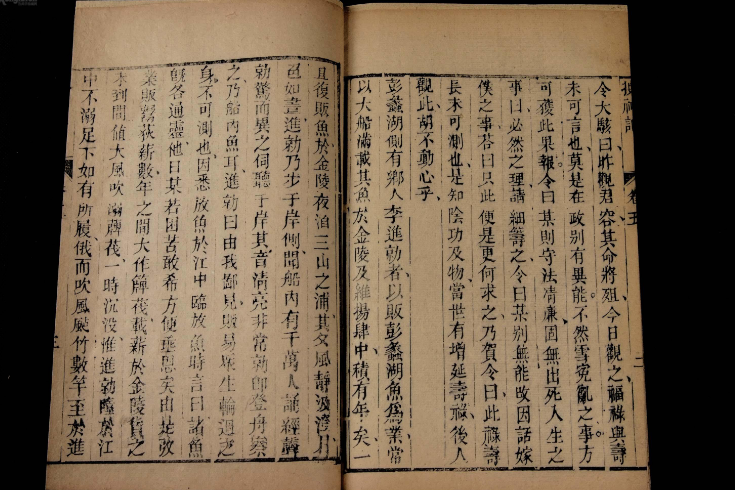 搜神記 卷五 二
令大駭曰昨觀君容其命將殂今日觀之福祿與壽
未可言也莫是在政别有異能不然雪寃亂之事方
可獲此果報令曰某則守法清廉固無出死入生之
事曰必然之理請細籌之令曰某别無能政因話嫁
僕之事荅曰只此便是更何求之乃賀令曰此祿壽
長未可測也是知陰功及物當世有增延壽祿後人
觀此胡不動心乎
彭蠡湖側有鄉人李進勍者以販彭蠡湖魚爲業常
以大船滿載其魚於金陵及維揚肆中積有年矣一
且復販魚於金陵夜泊三山之浦其夕風靜波澄月
色如晝進勍乃步于岸側聞船內有千萬人誦經聲
勍驚而異之伺聽于岸其音清亮非常勍卽登舟察
之乃船內魚耳進勍曰由我鄙見販易衆生輪迴之
身不可測也因悉放魚於江中臨放魚時言曰諸魚
旣各通靈他日某若困苦敢希方便垂恩矣由是改
業販䓍荻薪數年之間大作簰茷載薪於金陵貨之
未到間値大風吹溺簰茷一時沉没惟進勍墮於江
中不溺足下如有所履俄而吹風颭竹數竿至於進
三